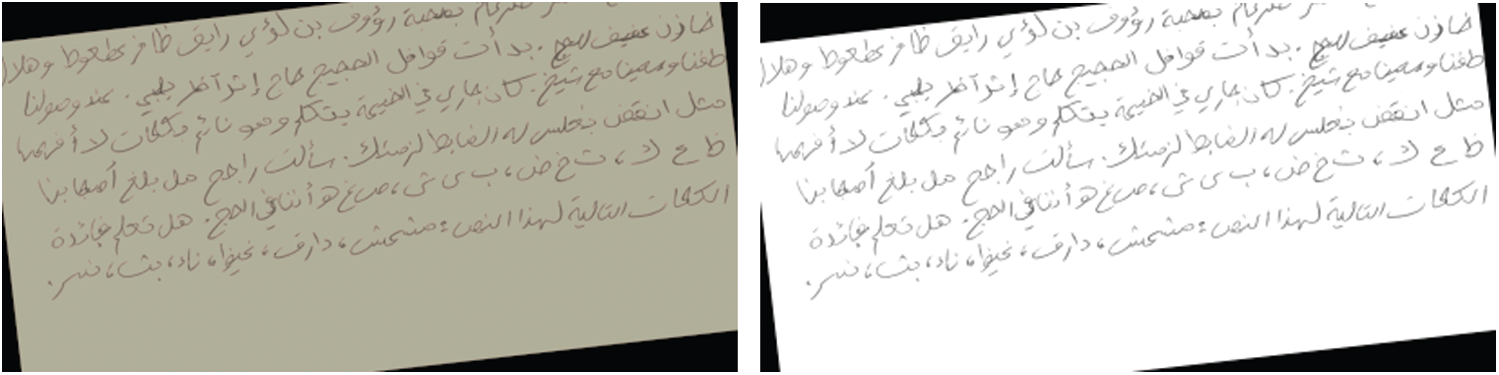 ضرغام بصحبة رؤوف بن لؤي رايق ظافر عطعوط وهلال
خازن عفيف. بدأت قوافل الحجيج حاج إثر آخر يلبي. عند وصولنا
طفنا وسعينا مع شيخ. كان جاري في الخيمة يتكلم وهو نائم بكلمات لا أفهمها
مثل انقض بغلس له الضابط لزمتك. سألت راجح هل بلغ أصحابنا
ظ ع ك، ث خ ض، ب ى ش، ص غ هـ أننا في الحج. هل تعلم فائدة
الكلمات التالية لهذا النص: مشمش، دارف، ناد، بث، نسر.
ضرغام بصحبة رؤوف بن لؤي رايق ظافر عطعوط وهلال
خازن عفيف. بدأت قوافل الحجيج حاج إثر آخر يلبي. عند وصولنا
طفنا وسعينا مع شيخ. كان جاري في الخيمة يتكلم وهو نائم بكلمات لا أفهمها
مثل انقض بغلس له الضابط لزمتك. سألت راجح هل بلغ أصحابنا
ظ ع ك، ث خ ض، ب ى ش، ص غ هـ أننا في الحج. هل تعلم فائدة
الكلمات التالية لهذا النص: مشمش، دارف، ناد، بث، نسر.